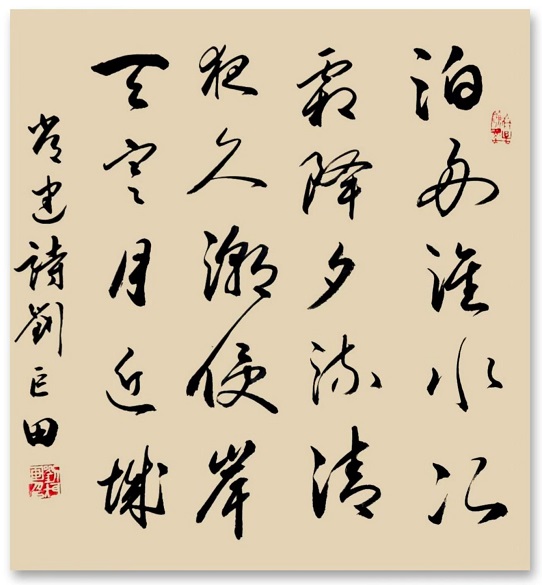 泊舟淮水次
霜降夕流清
夜久潮侵岸
天寒月近城
常建詩劉巨田